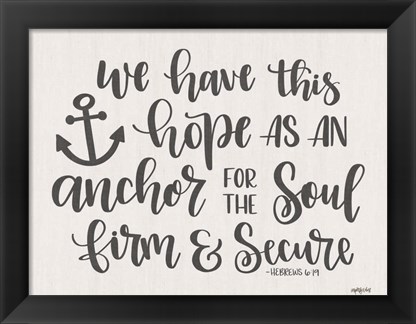 we have this
hope AS AN
anchor FOR THE Soul
firm & Secure
-HEBREWS 6:19